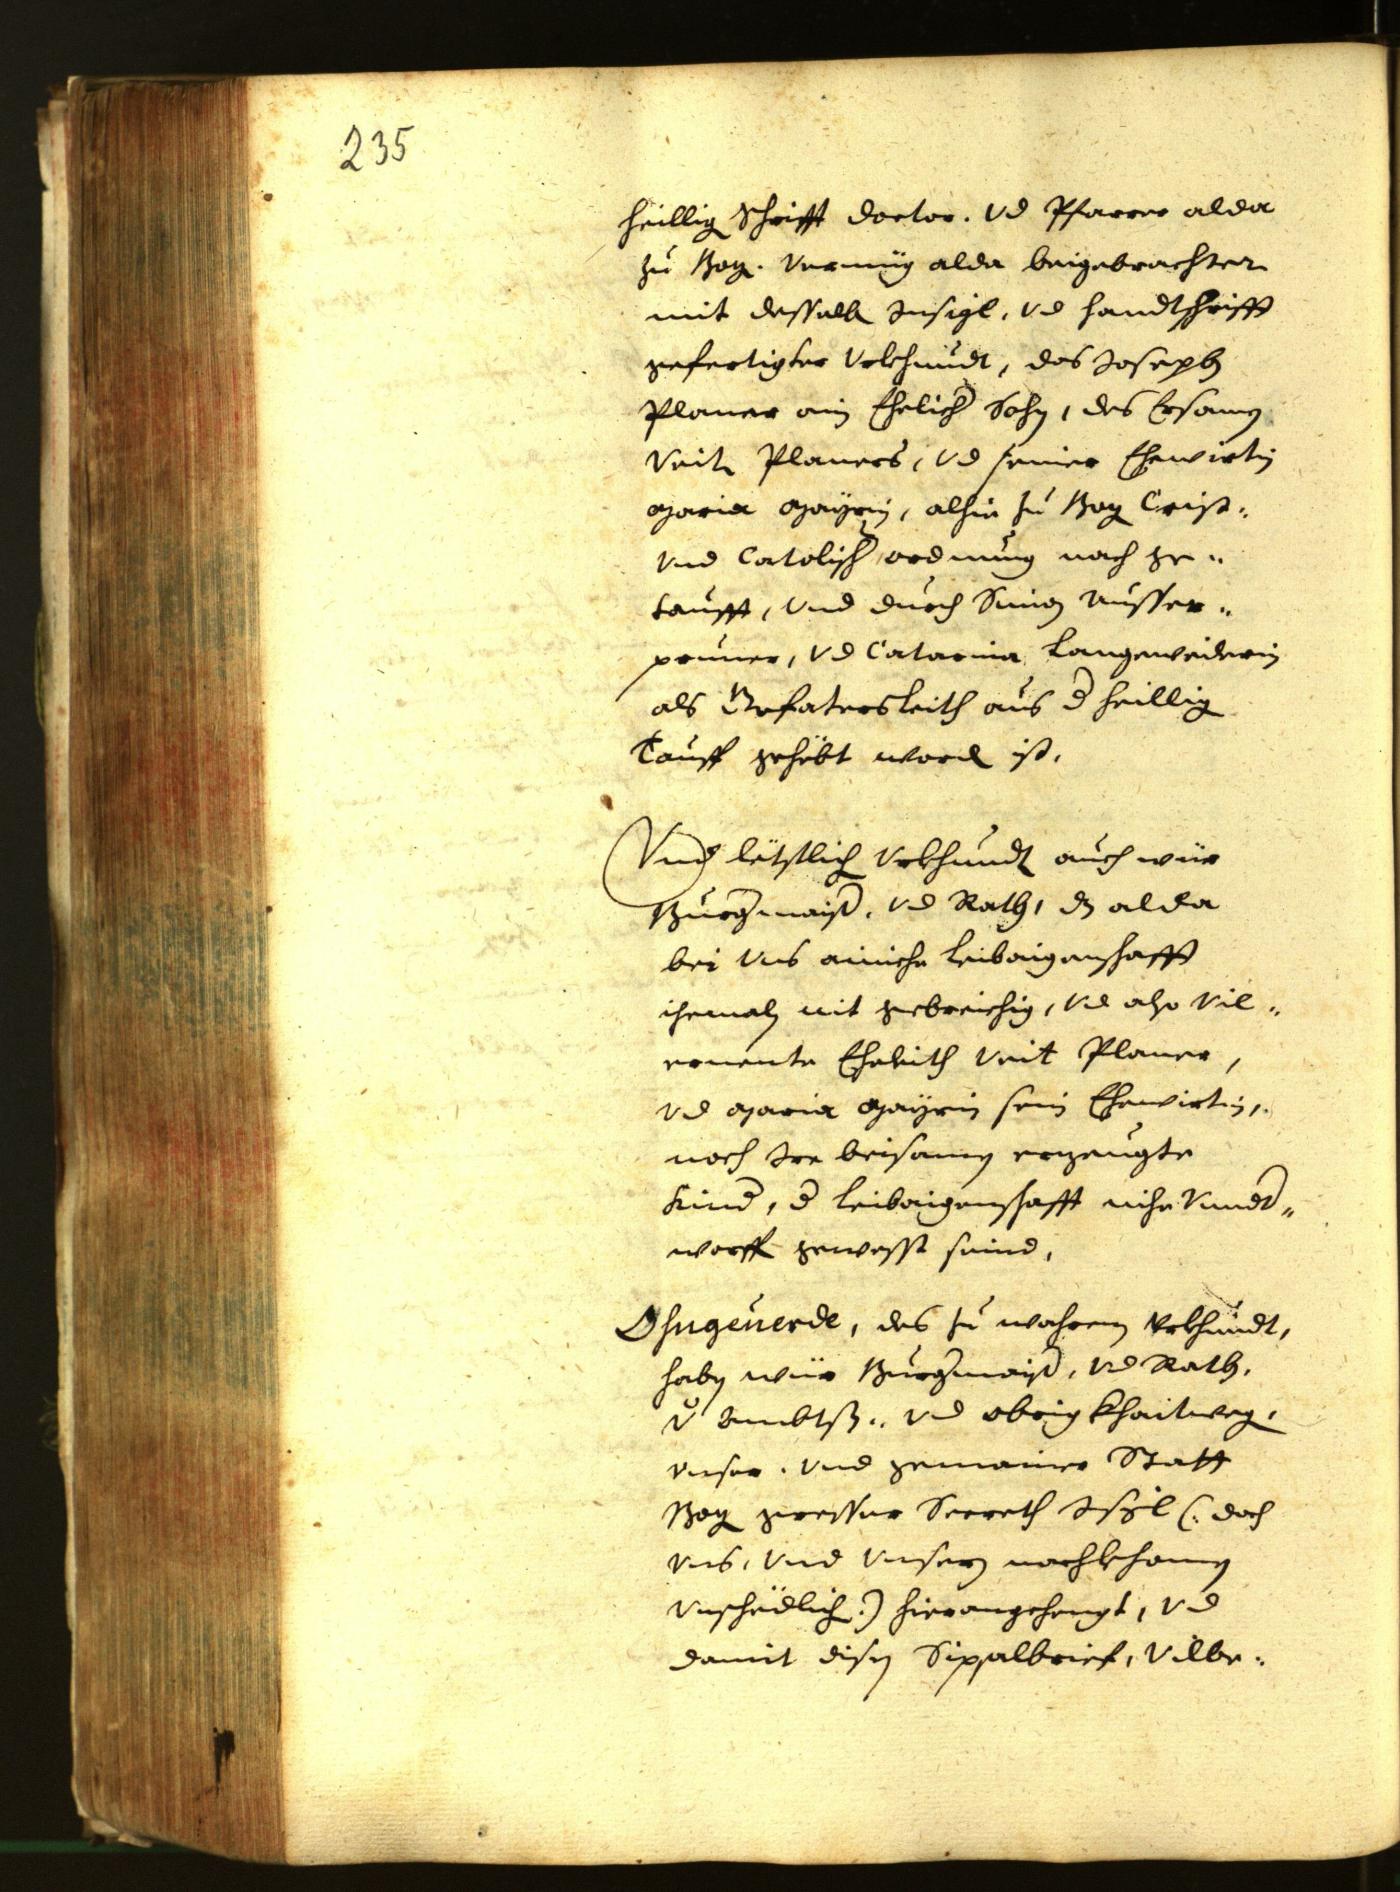 235
heillig Schrifft doctor. Vd Pfarrer alda
zu Boz. Vermüg alda beigebrachter
mit desselb Insigl, Vd handtschrifft
gefertigter Vrkhundt, das Joseph
Planer ain Ehelich Sohn, des Ersamen
Veit Planers, Vd seiner Ehewirtin
Maria Mayrin, alhie zu Boz Crist-
Vnd Catolisch ordnung nach ge-
taufft, Vnd durch Simon Ausser-
prunner, Vd Catarina Langeweiderin
als Gefatersleith aus d heillig
Tauff gehebt word ist.
Vnd letstlich Vrkhundt auch wür
Burgmaist. Vd Rath, dz alda
bei Vns ainiche Leibaigenschafft
iemals nit gebreichig, Vd also Vil-
ernente Eheleith Veit Planer,
Vd Maria Mayrin sein Ehewirtin,
noch Ire beisamen erzeugte
Kind, d Leibaigenschafft nihe Vndt-
worff gewesst seind.
Ohngeuerde, des zu wahrem Vrkhundt,
haben wür Burgmaist, Vd Rath,
v Ambtß- Vd obrigkhaitweg,
Vnser. Vnd gemainer Statt
Boz gresser Secreth Insigl (: doch
Vns, Vnd Vnsern nachkhomen
Vnschedlich:) hierangehengt, Vd
damit disen Sipsalbrief, Vilbe-